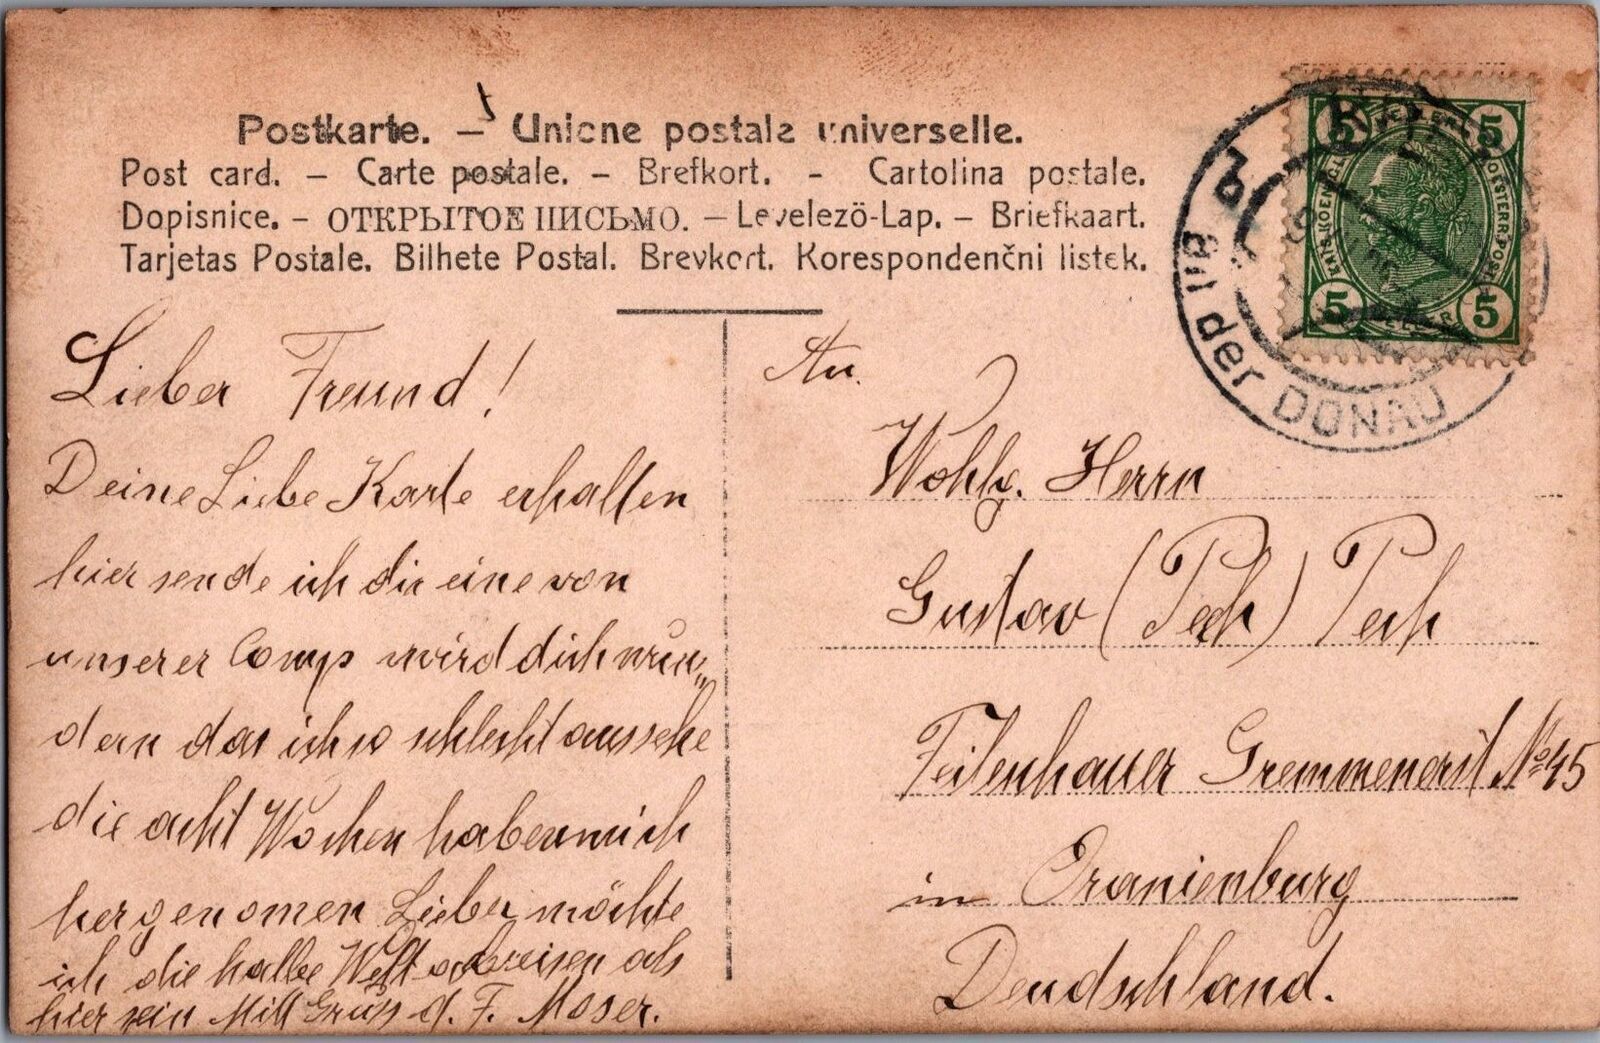 Postkarte. – Unione postale universelle.
Post card. – Carte postale. – Brefkort. - Cartolina postale.
Dopisnice. – ОТКРЫТОЕ ПИСЬМО. – Levelező-Lap. – Briefkaart.
Tarjetas Postale. Bilhete Postal. Brevkort. Korespondenčni listek.
5 5
KAIS. KOENIGL. OESTERR. POST
5 HELLER 5
a.d. DONAU
Lieber Freund!
Deine Liebe Karte erhalten
hier sende ich dir eine von
unserer Comp wird dich wun„
dern das ich so schlecht aussehe
die acht Wochen haben mich
hergenomen Lieber möchte
ich die halbe Welt abreisen als
hier sein Mitt Grüss d. F. Moser.
An
Wohlg. Herrn
Gustav (Pech) Pech
Feilenhauer Gremmenerst No 45
in Oranienburg
Deudschland.